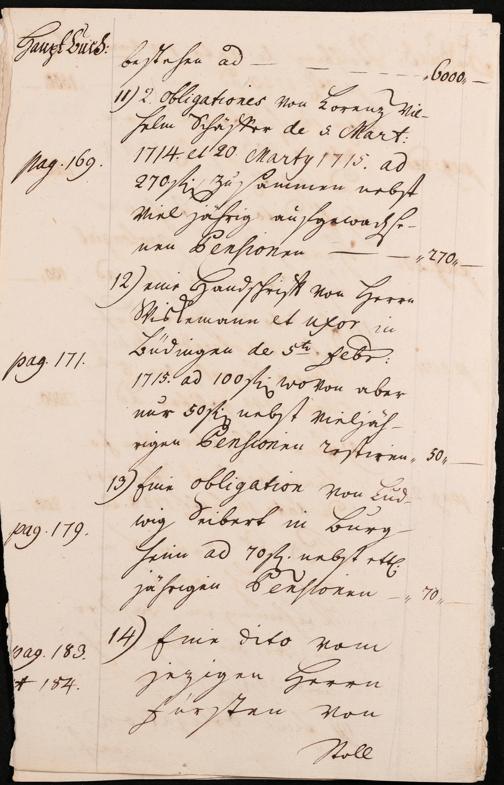 Haupt Buch:
bestehen ad — — „6000„—
11) 2. obligationes von Lorenz Wil-
helm Schäffer de 5 Mart:
pag. 169. 1714. et 20 Marty 1715. ad
270 fl. zusammen nebst
viel jährig aufgewachse-
nen Pensionen — — „270„—
12) eine Handschrifft von Herrn
et uxor in
Büdingen de 5ten Febr:
pag. 171. 1715. ad 100 fl. wovon aber
nur 50 fl. nebst vieljäh-
rigen Pensionen restiren„ 50„—
13) Eine obligation von Lud-
pag. 179. wig Seibert in Burg-
heim ad 70 fl. nebst etl.
jährigen Pensionen — „ 70„—
14) Eine dito vom
pag. 183. jezigen Herrn
184. Fürsten von
Stoll